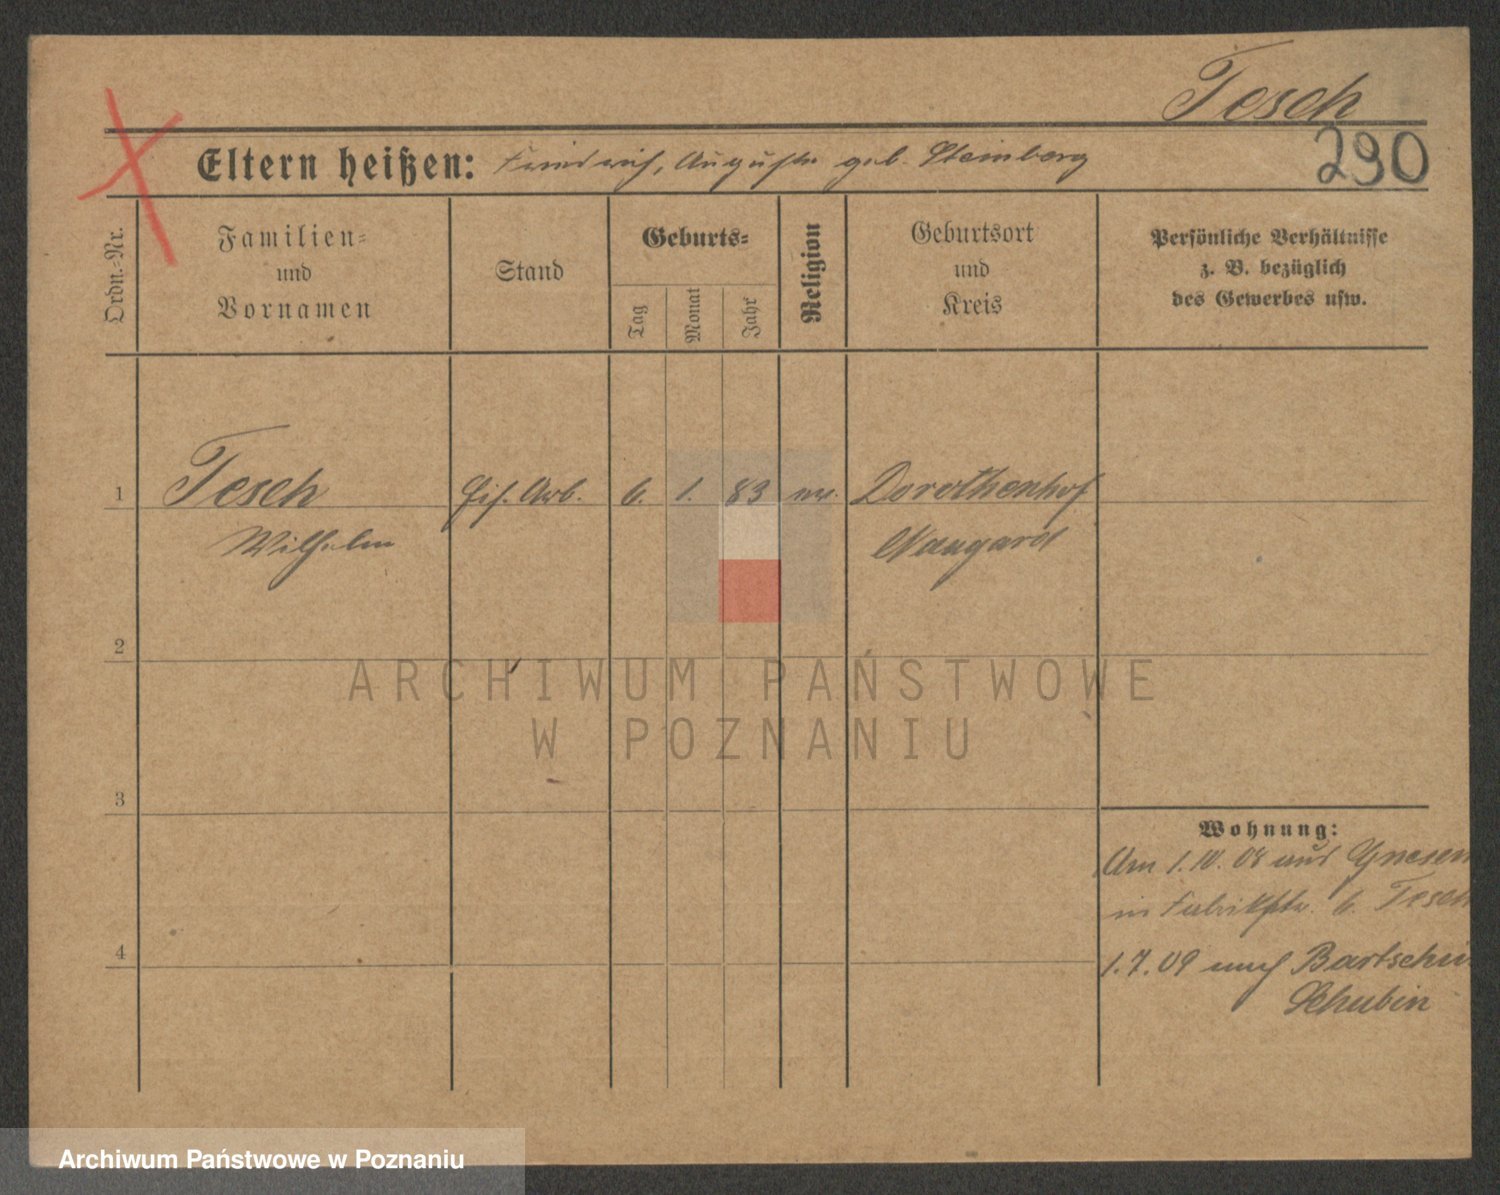 Tesch
290
Eltern heißen: Friedrich, Auguste geb. Steinberg
Ordn.-Nr.
Familien-
und
Vornamen
Stand
Geburts-
Tag
Monat
Jahr
Religion
Geburtsort
und
Kreis
Persönliche Verhältnisse
z. B. bezüglich
des Gewerbes usw.
1 Tesch Arb. 6. 1. 83 Dorothenhof
Wilhelm Naugard
2
3
4
Wohnung:
Am 1.10.08 aus Gnesen
in Fabrikstr. 6. Tesch
1.7.09 nach Bartschin
Schubin
ARCHIWUM PAŃSTWOWE
W POZNANIU
Archiwum Państwowe w Poznaniu